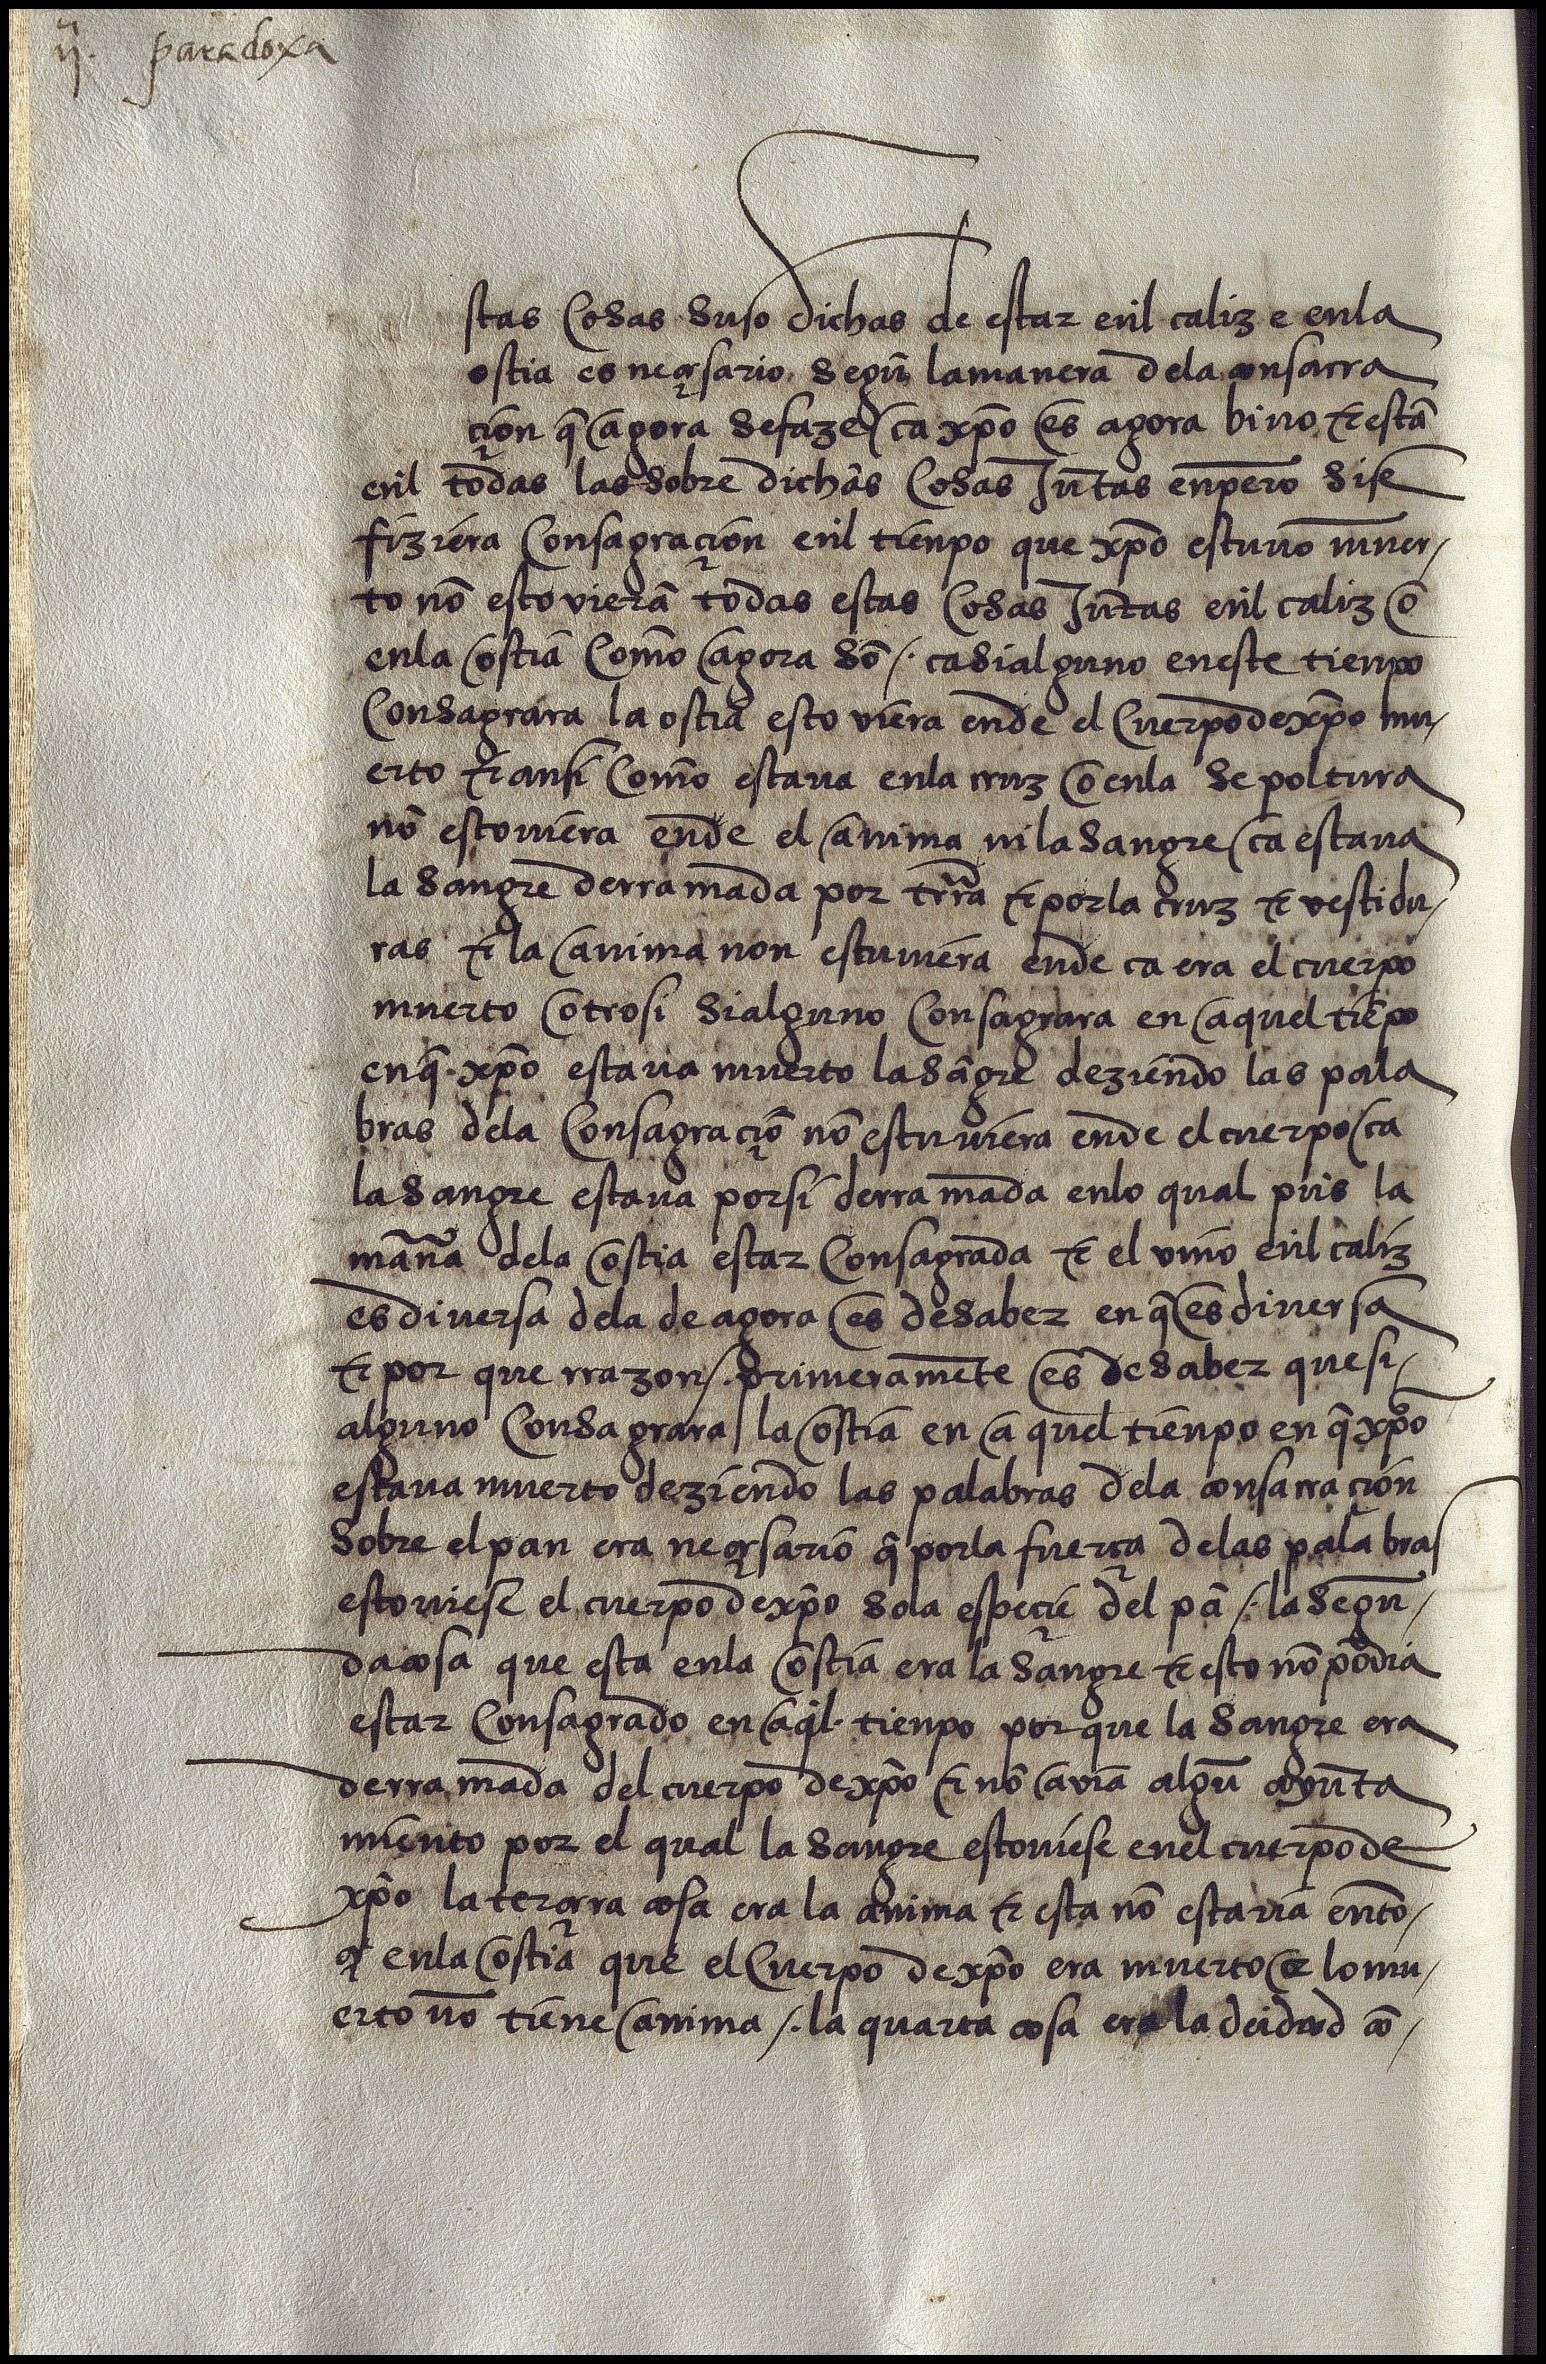 ij. paradoxa
stas cosas suso dichas de estar enl caliz e enla
ostia es neçesario segũ lamanera dela consacra
çion q̃ agora sefaze / ca xp̃o es agora biuo & està
enl todas las sobre dichas cosas Juntas enpero sise
fiziera consagraçion enl tienpo que xp̃o estuuo muer /
to nõ estovierã todas estas cosas Juntas enl caliz o
enla ostia como agora sõ /. ca sialguno eneste tienpo
consagrara la ostia esto viera ende el cuerpo de xp̃o mu /
erto & ansi como estaua enla cruz o enla sepoltura
nõ estouiera ende el anima nila sangre / ca estaua
la sangre derramada por trr̃a & porla cruz & vestidu /
ras & la anima non estuuiera ende ca era el cuerpo
muerto otrosi sialguno consagrara en aquel tiẽpo
enq̃. xp̃o estaua muerto la sãgre deziendo las pala
bras dela consagraçiõ nõ estuuiera ende el cuerpo / ca
la sangre estaua porsi derramada enlo qual pues la
mañra dela ostia estar consagrada & el vino enl caliz
es diuersa dela de agora es desaber en q̃ es diuersa
& por que rrazon /. primeramẽte es desaber que si /
alguno consagrara / la ostia en a quel tienpo en q̃ xp̃o
estaua muerto deziendo las palabras dela consacraçion
sobre el pan era neçesario q̃ porla fuerça delas palabras
estouiese el cuerpo de xp̃o sola espeçie del pã /. la segun /
da cosa que esta enla ostia era la sangre & esto nõ podia
estar consagrado en aq̃l. tienpo por que la sangre era
derramada del cuerpo de xp̃o & nõ avia algũ ayunta
miento por el qual la sangre estouiese enel cuerpo de
xp̃o la terçera cosa era la anima & esta nõ estaria ento /
çe enla ostia que el cuerpo de xp̃o era muerto & lo mu /
erto nõ tiene anima /. la quarta cosa era la deidad co /